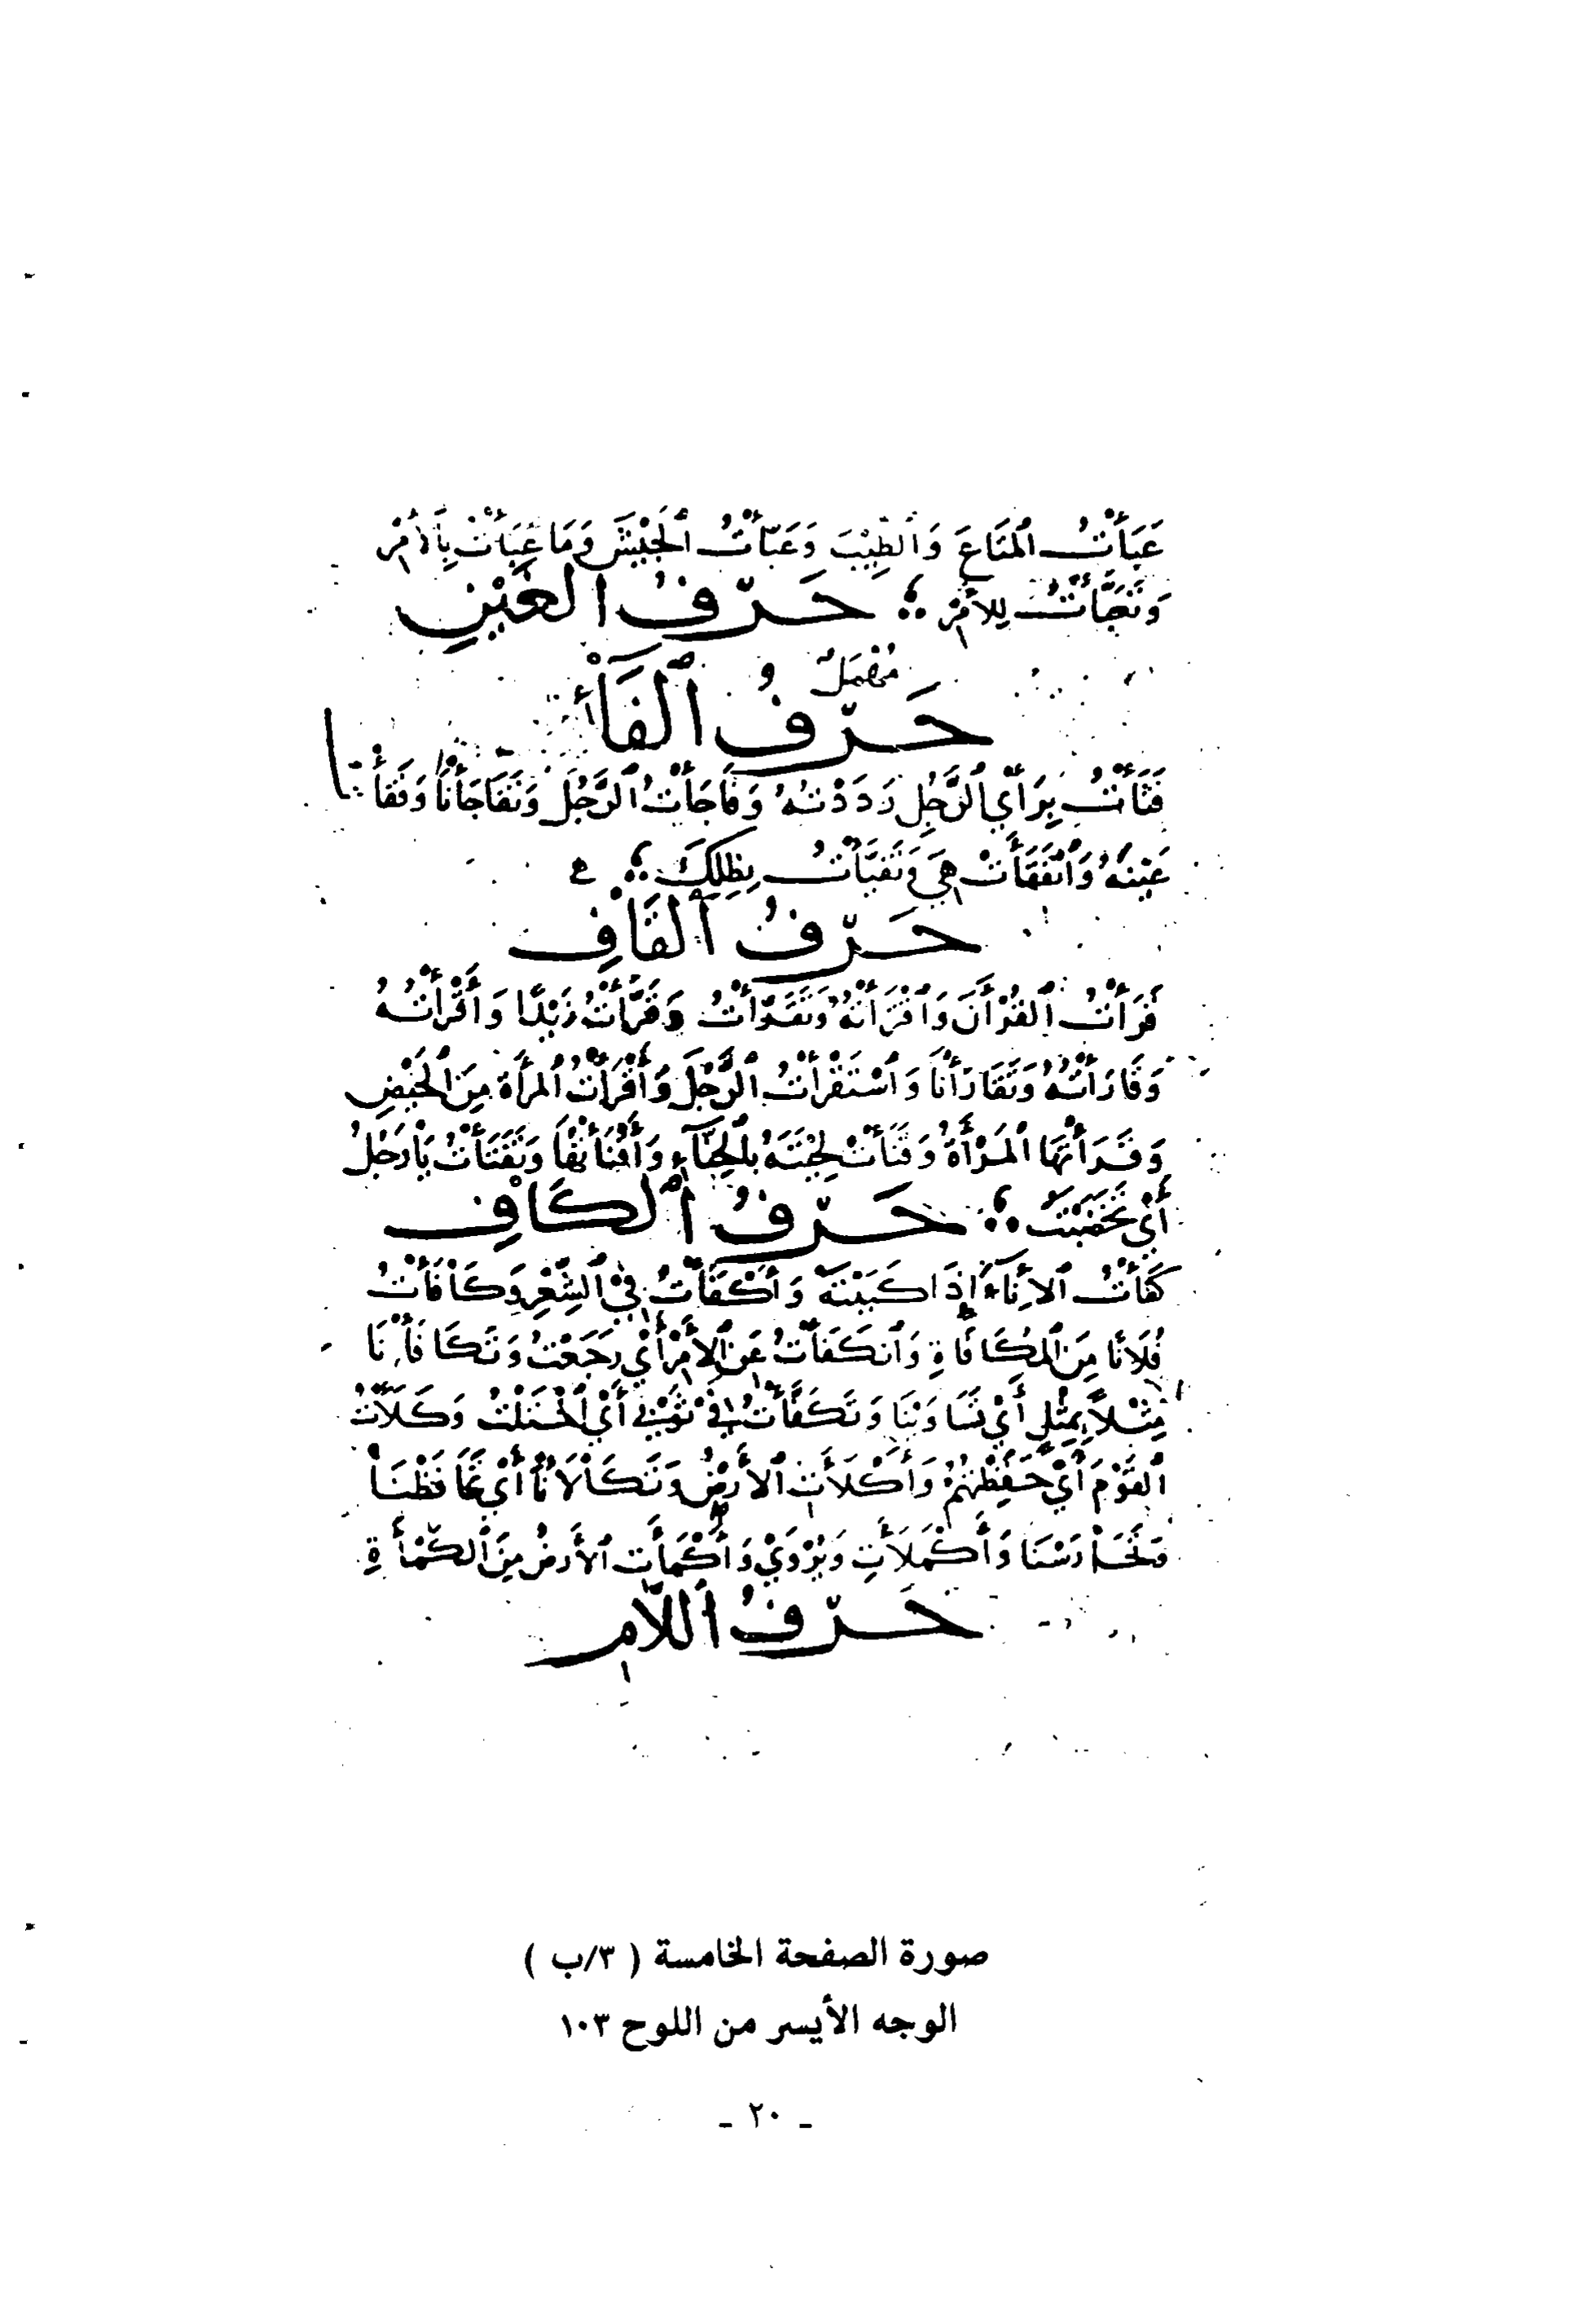 عَبَأْتُ المَتَاعَ وَالطِّيْبَ وَعَبَّأْتُ الجَيْشَ وَمَا عَبَأْتُ بِالأَمْرِ
وَتَعَبَّأْتُ لِلأَمْرِ حَرْفُ الغَيْنِ
مُهْمَلٌ
حَرْفُ ٱلْفَاءِ
فَثَأْتُ بِرَأْيِ الرَّجُلِ رَدَدْتُهُ وَفَاجَأْتُ الرَّجُلَ وَتَفَاجَأْنَا وَفَقَأْتُ
عَيْنَهُ وَٱنْفَقَأَتْ هِيَ وَتَفَيَّأْتُ بِظِلِّكَ
حَرْفُ ٱلْقَافِ
قَرَأْتُ ٱلقُرْأَنَ وَٱقْتَرَأْتُهُ وَتَقَرَّأْتُ وَقَرَّأْتُ زَيْدًا وَأَقْرَأْتُهُ
وَقَارَأْتُهُ وَتَقَارَأْنَا وَٱسْتَقْرَأْتُ ٱلرَّجُلَ وَأَقْرَأَتُ ٱلمَرأَة مِنَ ٱلحَيْضِ
وَقَرَأَتْهَا ٱلمَرْأَةُ وَقَنَأْتُ لِحْيَتَهُ بِٱلحِنَّآءِ وَأَقْنَأْتُهَا وَتَقَنَّأْتُ يَا رَجُلُ
أَيْ تَخَضَّبْتَ حَرْفُ ٱلْكَافِ
كَفَأْتُ ٱلأِنَاءَ إِذَا كَبَبْتَهُ وَأَكْفَأْتُ فِي ٱلشِّعْرِ وَكَافَأْتُ
فُلَانًا مِنَ ٱلمُكَافَاةِ وَٱنكَفَأْتُ عَنِ ٱلأَمْرِ أَيْ رَجَعْتُ وَتَكَافَأْنَا
مِثْلاً بِمِثْلٍ أَيْ تَسَاوَيْنَا وَتَكَفَّأْتُ فِي ثَوْبِي أَيْ ٱخْتَلْتُ وَكَلَأْتُ
ٱلقَوْمَ أَيْ حَفِظْتُهُمْ وَأَكْلَأَتِ ٱلأَرْضُ وَتَكَالَأْنَا أَيْ تَحَافَظْنَا
وَتَحَارَسْنَا وَأَكْمَلَأَتِ وَيُرْوَيْ وَأَكْمَأَتِ ٱلأَرضُ مِنَ ٱلكَمْأَةِ
حَرْفُ ٱللَّامِ
صورة الصفحة الخامسة ( ٣/ب )
الوجه الأيسر من اللوح ١٠٣
- ٢٠ -